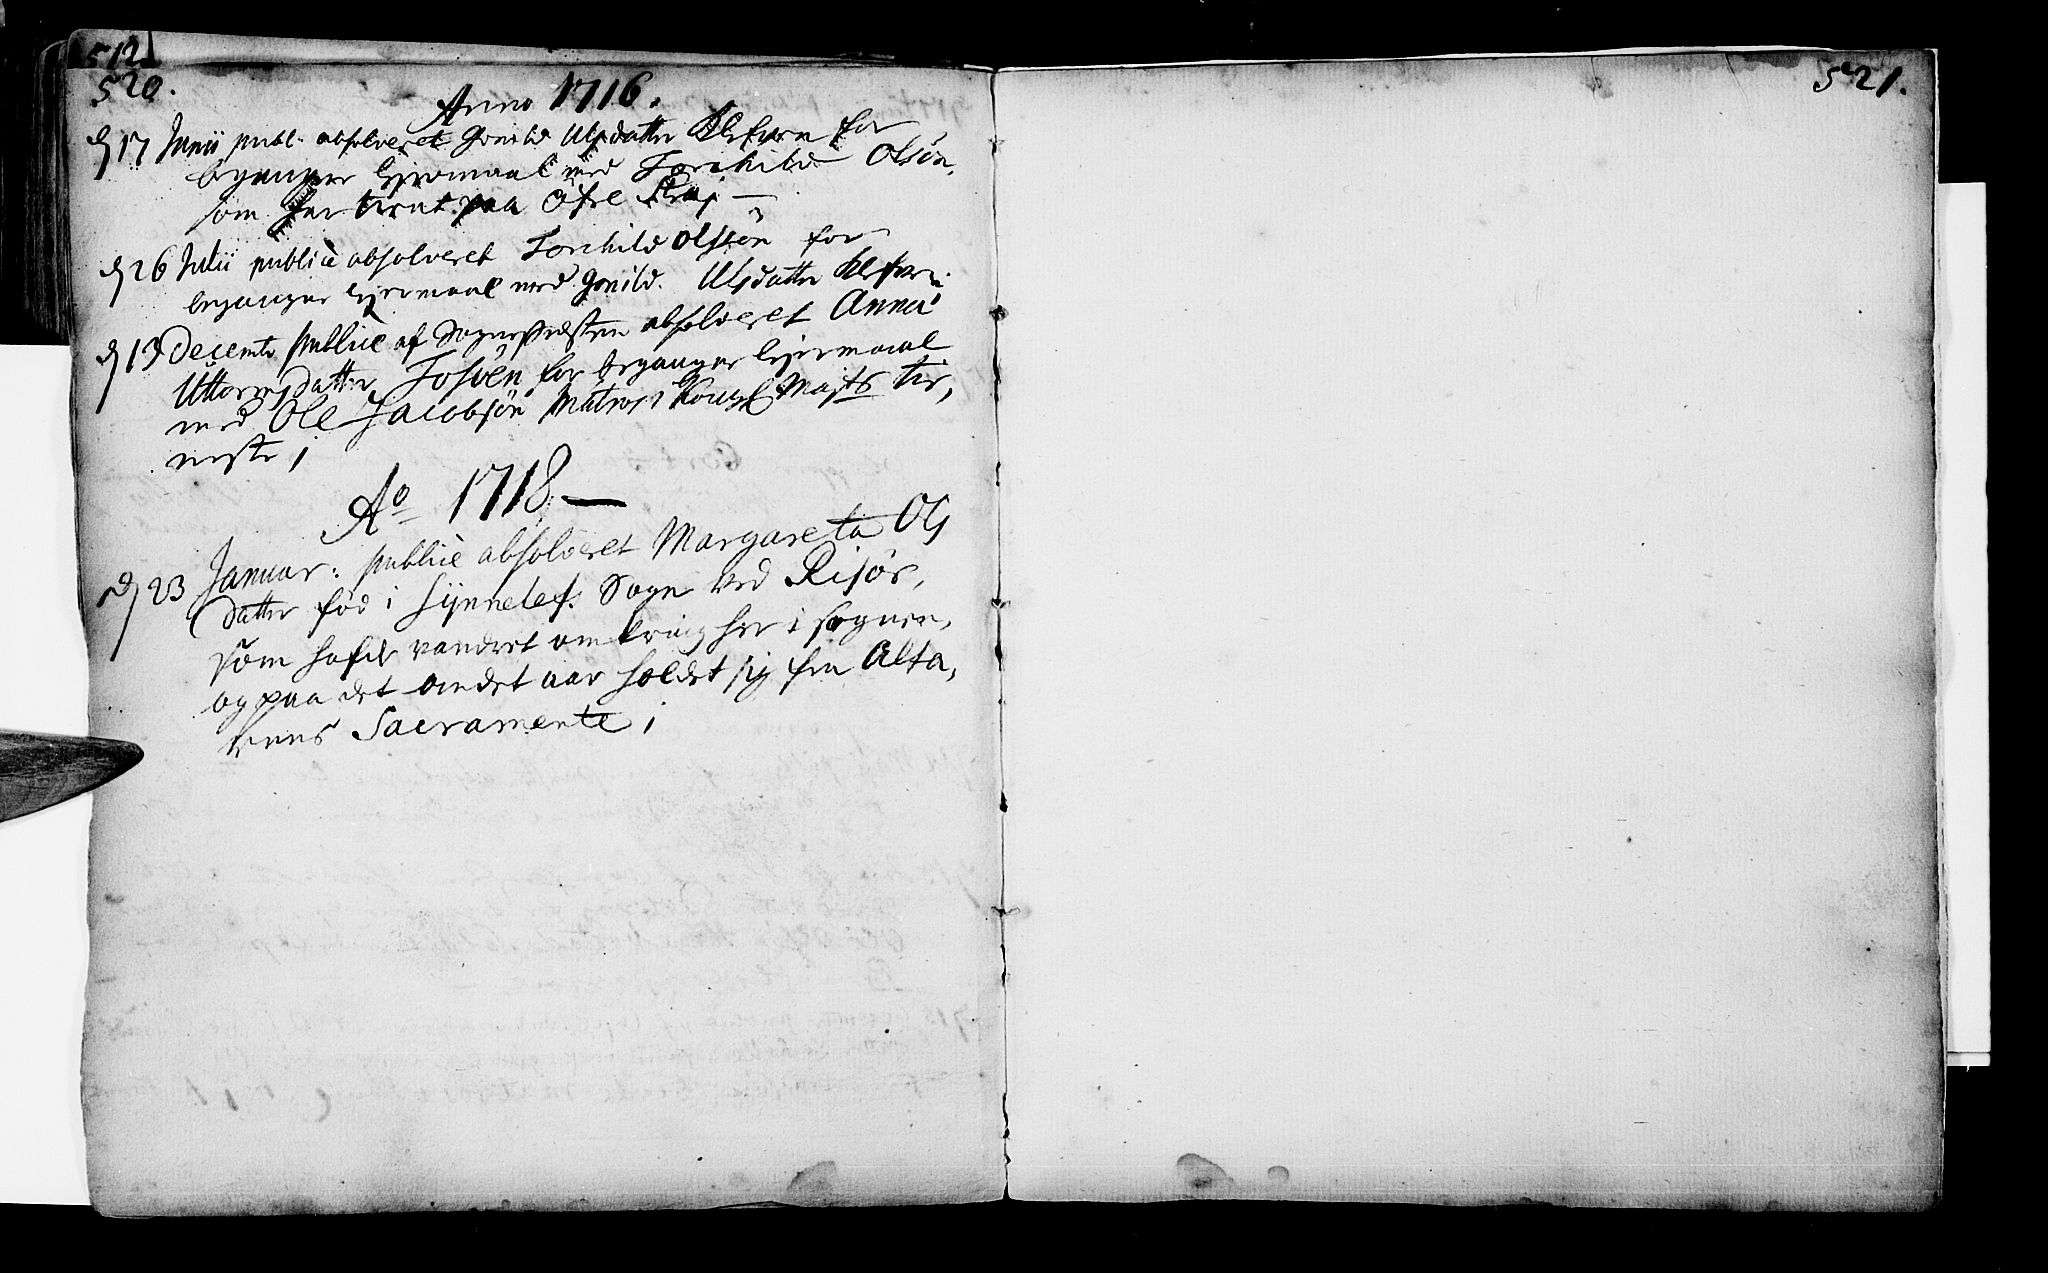 512
520.
Anno 1716.
d 17 Junii publ. absolveret Gonild Ulsdatter for
begangne leyermaal med Torchild Olsön,
som har tient paa öfre
d 26 Julii publicè absolveret Torchild Olssön for
begangne leyermaal med Gonild Ulsdatter
d 13 Decembr publicè af Sognepræsten absolveret Anna
Uttormsdatter for begangne leyermaal
med Ole Jacobsön Matros i Kongl Majts tie,
niste /
Ao 1718 —
d 23 Januar: publicè absolveret Margareta Ols
datter föd i Sogn ved Risör,
som hafde vandret omkring her i sognen,
og paa det andet aar holdet sig fra Alta,
rens Sacramente /
521.